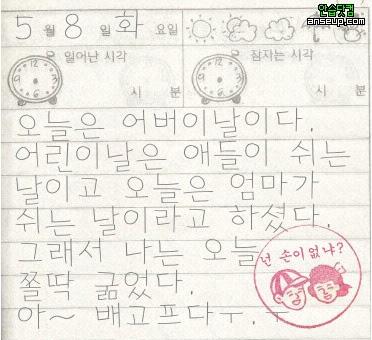 안습닷컴
anseup.com
5월 8일 화요일
일어난 시각 잠자는 시각
시 분 시 분
오늘은 어버이날이다.
어린이날은 애들이 쉬는
날이고 오늘은 엄마가
쉬는 날이라고 하셨다.
그래서 나는 오늘
쫄딱 굶었다.
아~ 배고프다ㅜ.ㅜ
넌 손이 없냐?